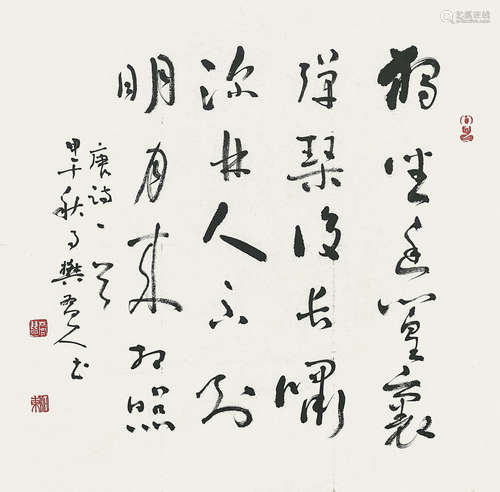 獨坐幽篁裏
彈琴復長嘯
深林人不知
明月來相照
唐詩一首
甲午秋月樊人书